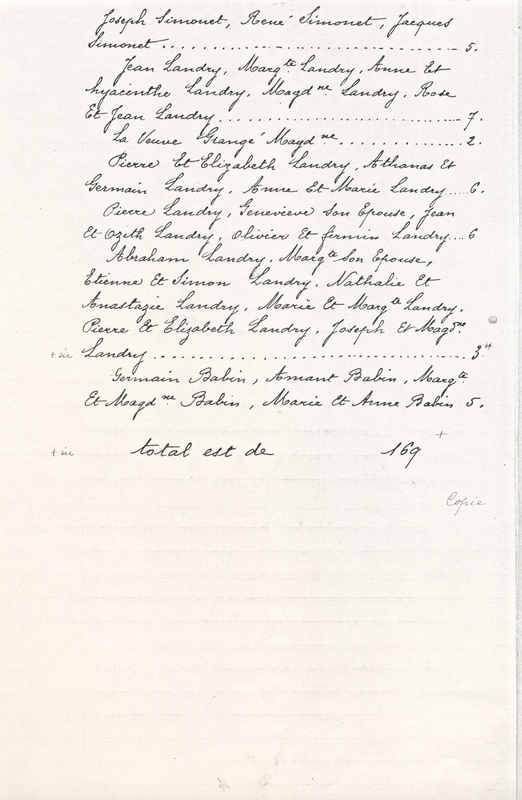 Joseph Simonet, René Simonet, Jacques
Simonet .................... 5.
Jean Landry, Margte Landry, Anne Et
hyacinthe Landry, Magdne Landry, Rose
Et Jean Landry .................... 7.
La Veuve Grangé Magdne ............ 2.
Pierre Et Elizabeth Landry, Athanas Et
Germain Landry, Anne Et Marie Landry .... 6.
Pierre Landry, Genevieve Son Epouse, Jean
Et Ozith Landry, Olivier Et firmin Landry... 6
Abraham Landry, Margte Son Epouse,
Etienne Et Simon Landry, Nathalie Et
Anastazie Landry, Marie Et Margte Landry,
Pierre Et Elizabeth Landry, Joseph Et Magdne
+ sic Landry .................... 3
Germain Babin, Amant Babin, Margte
Et Magdne Babin, Marie Et Anne Babin 5.
+ sic total est de 169 +
Copie